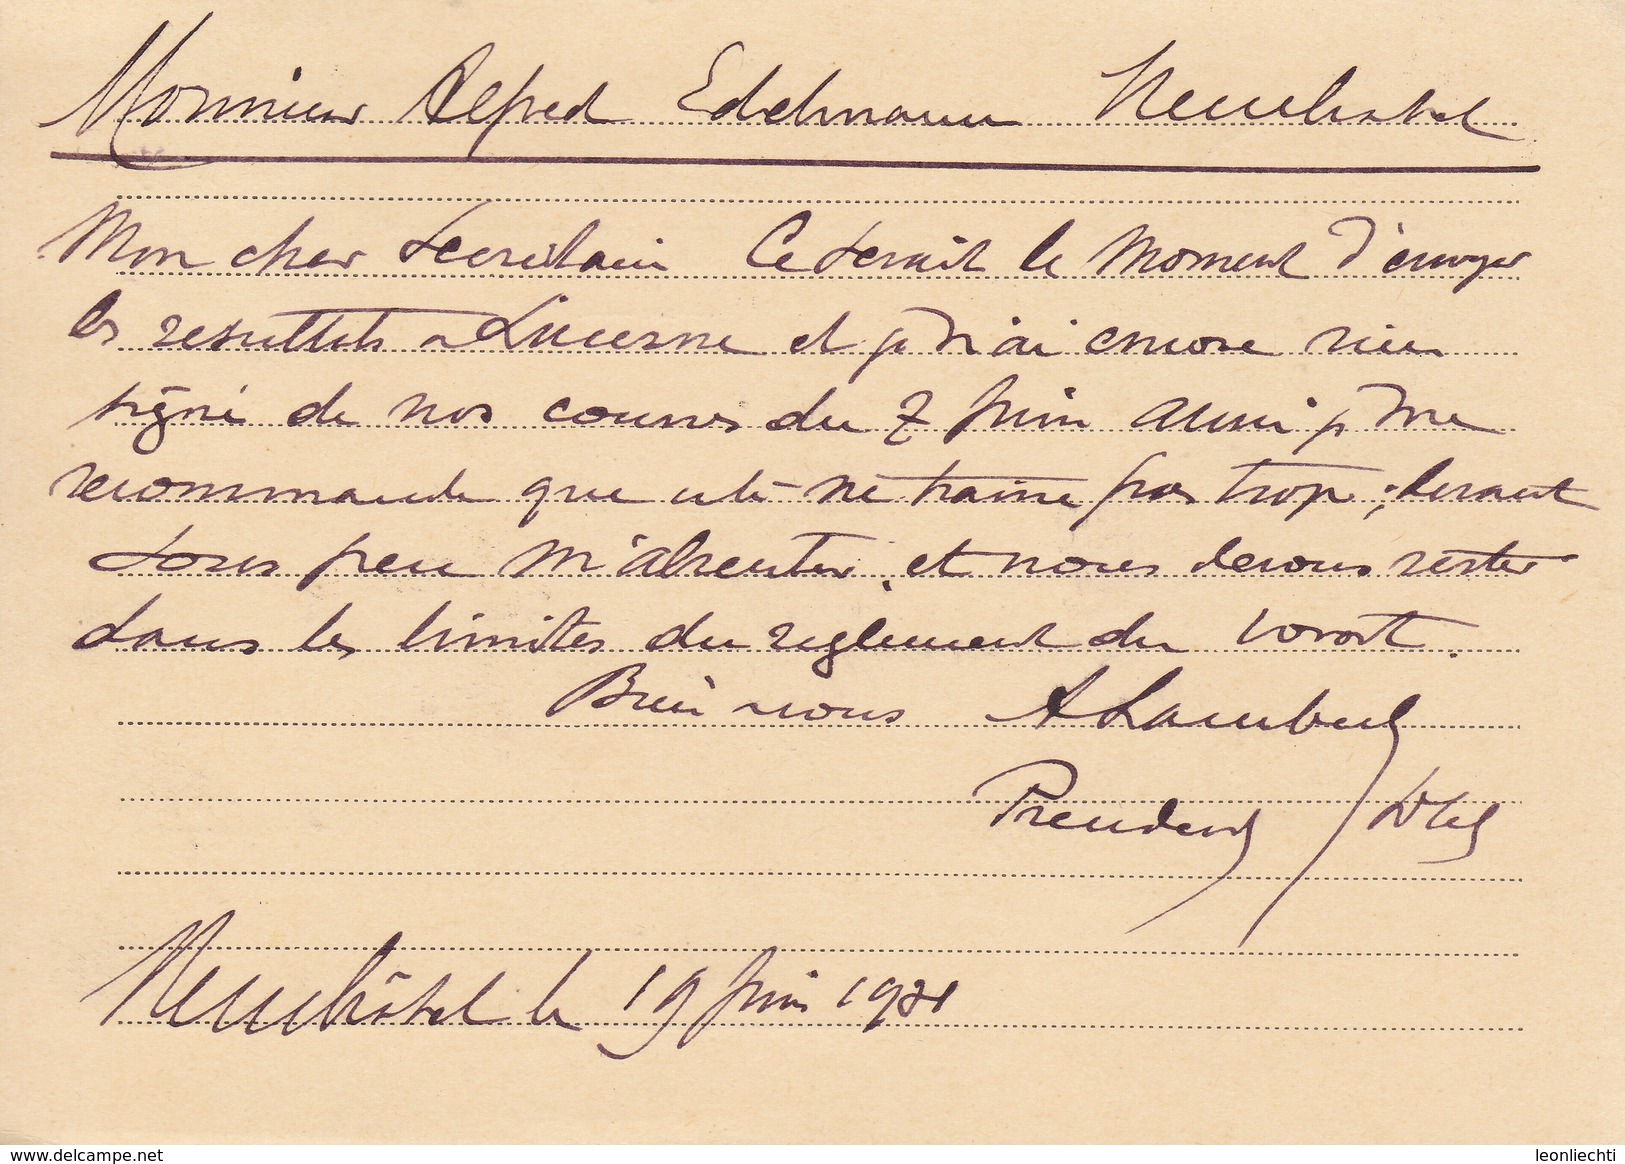 Monsieur Alfred Edelmann Neuchatel
Mon cher Secrétaire Ce serait le moment d'envoyer
les resultats a Lucerne et je n'ai encore rien
signé de nos courses du 7 juin aussi je me
recommande que cela ne traine pas trop, devant
sous peu m'absenter, et nous devons rester
dans les limites du reglement du
Bien a vous A Lambert
President
Neuchâtel le 19 juin 1931
www.delcampe.net
leonliechti